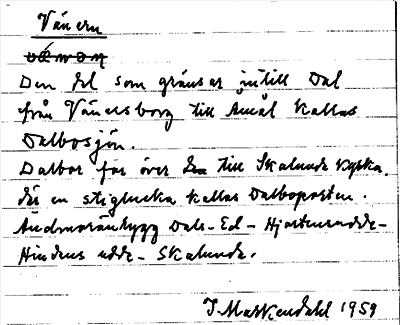 Vänern
Den del som gränsar intill Dal
från Vänersborg till Åmål kallas
Dalbosjön.
Dalbor for över till Skalunda kyrka,
där en stiglucka kallas Dalboporten.
Ändmoränbygg Dals-Ed - Hjortensudde -
Hindens udde - Skalunda.
I Maskendahl 1959